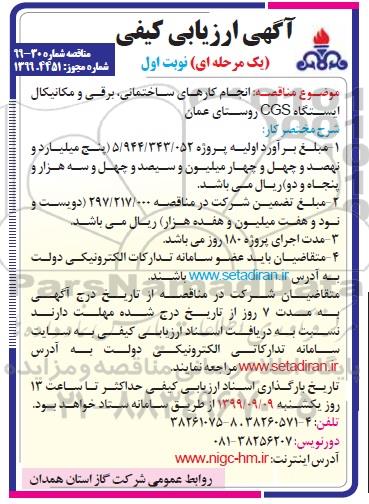 آگهی ارزیابی کیفی
(یک مرحله ای) نوبت اول
مناقصه شماره ۳۰-۹۹
شماره مجوز: ۱۳۹۹.۴۴۵۱
موضوع مناقصه: انجام کارهای ساختمانی، برقی و مکانیکال
ایستگاه CGS روستای عمان
شرح مختصر کار:
۱-مبلغ برآورد اولیه پروژه ۵/۹۴۴/۳۴۳/۰۵۲ (پنج میلیارد و
نهصد و چهل و چهار میلیون و سیصد و چهل و سه هزار و
پنجاه و دو) ریال می باشد.
۲-مبلغ تضمین شرکت در مناقصه ۲۹۷/۲۱۷/۰۰۰ (دویست و
نود و هفت میلیون و هفده هزار) ریال می باشد.
۳-مدت اجرای پروژه ۱۸۰ روز می باشد.
۴-متقاضیان باید عضو سامانه تدارکات الکترونیکی دولت
به آدرس www.setadiran.ir باشند.
متقاضیان شرکت در مناقصه از تاریخ درج آگهی
به مدت ۷ روز از تاریخ درج شده مهلت دارند
نسبت به دریافت اسناد ارزیابی کیفی به سایت
سامانه تدارکاتی الکترونیکی دولت به آدرس
www.setadiran.ir مراجعه نمایند.
تاریخ بارگذاری اسناد ارزیابی کیفی حداکثر تا ساعت ۱۳
روز یکشنبه ۱۳۹۹/۰۹/۰۹ از طریق سامانه ستاد خواهد بود.
تلفن: ۴-۳۸۲۶۰۵۷۱ ۸-۳۸۲۶۱۰۷۵
دورنویس: ۳۸۲۵۶۲۰۷-۰۸۱
آدرس اینترنت: www.nigc-hm.ir
روابط عمومی شرکت گاز استان همدان